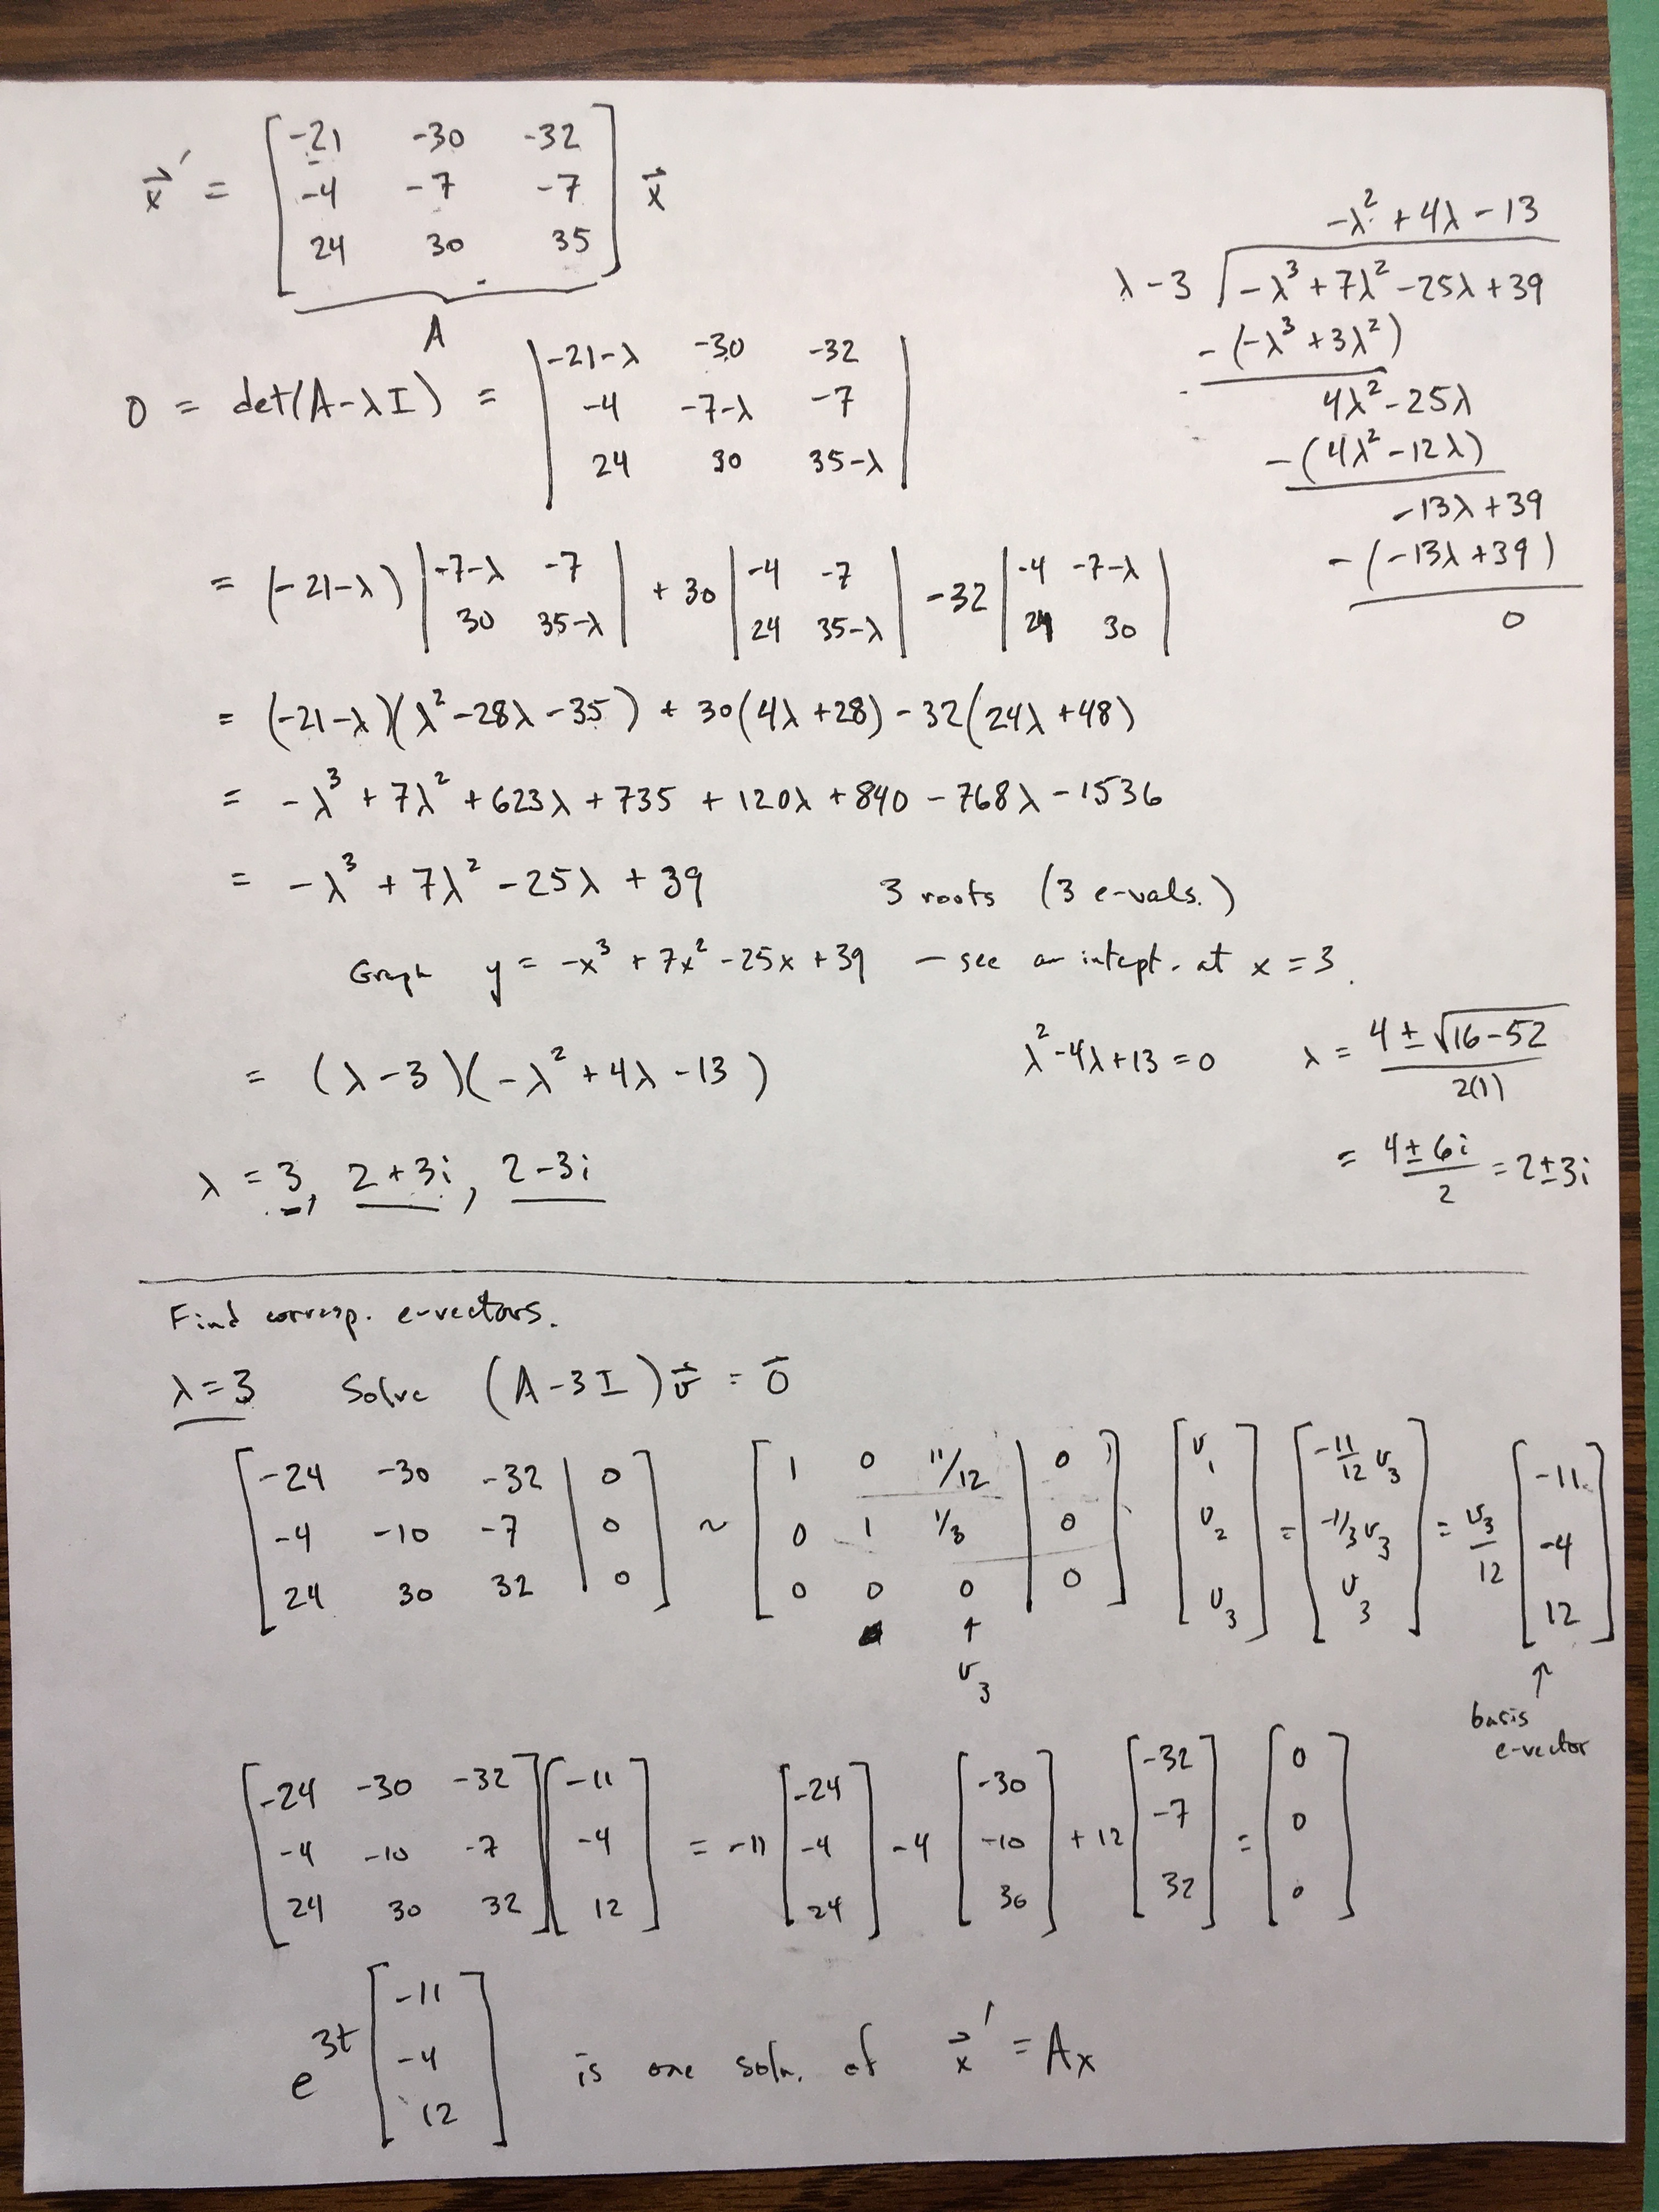 x⃗′ = [ -21 -30 -32 ; -4 -7 -7 ; 24 30 35 ] x⃗
A
0 = det(A-λI) = | -21-λ -30 -32 ; -4 -7-λ -7 ; 24 30 35-λ |
= (-21-λ) | -7-λ -7 ; 30 35-λ | + 30 | -4 -7 ; 24 35-λ | - 32 | -4 -7-λ ; 24 30 |
= (-21-λ)(λ² - 28λ - 35) + 30(4λ + 28) - 32(24λ + 48)
= -λ³ + 7λ² + 623λ + 735 + 120λ + 840 - 768λ - 1536
= -λ³ + 7λ² - 25λ + 39 3 roots (3 e-vals.)
Graph y = -x³ + 7x² - 25x + 39 — see an intcpt. at x = 3.
= (λ-3)(-λ² + 4λ - 13)
λ = 3, 2+3i, 2-3i
-λ² + 4λ - 13
λ-3 √ -λ³ + 7λ² - 25λ + 39
-(-λ³ + 3λ²)
4λ² - 25λ
-(4λ² - 12λ)
-13λ + 39
-(-13λ + 39)
0
λ² - 4λ + 13 = 0 λ = (4 ± √16-52) / 2(1)
= (4 ± 6i) / 2 = 2 ± 3i
Find corresp. e-vectors.
λ = 3 Solve (A-3I)v⃗ = 0⃗
[ -24 -30 -32 | 0 ; -4 -10 -7 | 0 ; 24 30 32 | 0 ] ~ [ 1 0 11/12 | 0 ; 0 1 1/3 | 0 ; 0 0 0 | 0 ] [ v₁ ; v₂ ; v₃ ] = [ -11/12 v₃ ; -1/3 v₃ ; v₃ ] = v₃/12 [ -11 ; -4 ; 12 ]
↑ v₃
↑ basis
e-vector
[ -24 -30 -32 ; -4 -10 -7 ; 24 30 32 ] [ -11 ; -4 ; 12 ] = -11 [ -24 ; -4 ; 24 ] - 4 [ -30 ; -10 ; 30 ] + 12 [ -32 ; -7 ; 32 ] = [ 0 ; 0 ; 0 ]
e^3t [ -11 ; -4 ; 12 ] is one soln. of x⃗′ = Ax